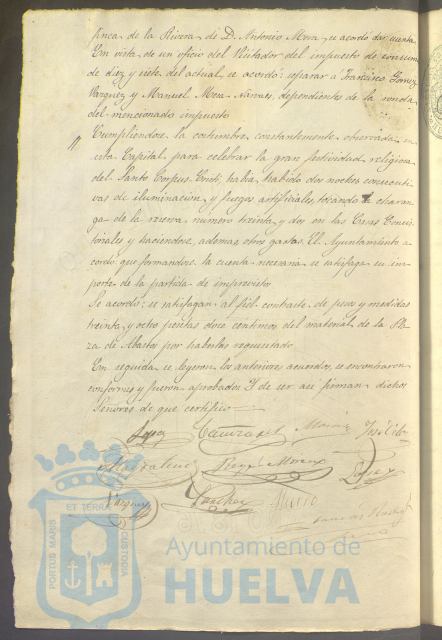 finca de la Rivera de D. Antonio Mora, se acordó dar cuenta
En vista de un oficio del Visitador del impuesto de consumos
de diez y siete del actual, se acordó: separar a Francisco Gomez
Vazquez y Manuel Mora Narvaes, dependientes de la ronda
del mencionado impuesto
Cumpliendose la costumbre constantemente observada en
esta Capital para celebrar la gran festividad religiosa
del Santo Corpus Cristi, habia habido dos noches consecuti-
vas de iluminacion y fuegos artificiales, tocando charan-
ga de la reserva numero treinta y dos en las Casas Consis-
toriales y haciendose ademas otros gastos. El Ayuntamiento a-
cordó: que formandose la cuenta necesaria se satisfaga su im-
porte de la partida de imprevistos
Se acordó: se satisfagan al fiel contraste de pesas y medidas
treinta y ocho pesetas doce centimos del material de la Pla-
za de Abastos por haberlas requisitado
En seguida se leyeron los anteriores acuerdos, se encontraron
conformes y fueron aprobados. Y de ser asi firman dichos
Señores de que certifico
PORTUS MARIS ET TERRAE CUSTODIA
Ayuntamiento de
HUELVA